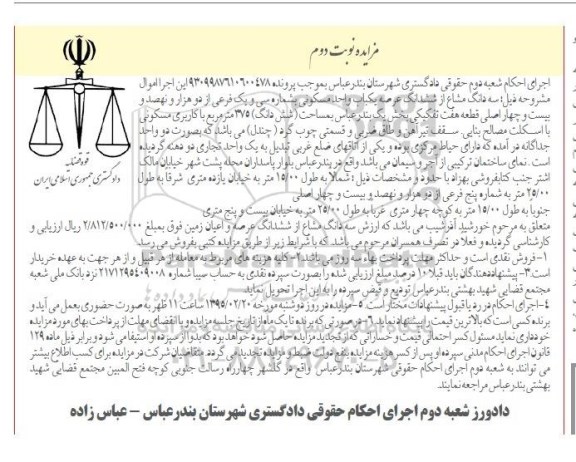 مزایده نوبت دوم
قوه قضائیه
دادگستری جمهوری اسلامی ایران
اجرای احکام شعبه دوم حقوقی دادگستری شهرستان بندرعباس بموجب پرونده ۹۳۰۹۹۸۷۶۱۰۶۰۰۴۷۸ این اجرا اموال
مشروحه ذیل: سه دانگ مشاع از ششدانگ عرصه یکباب واحد مسکونی بشماره سی و یک فرعی از دو هزار و نهصد و
بیست و چهار اصلی قطعه هفت تفکیکی بخش یک بندرعباس بمساحت (شش دانگ) ۳۷۵ مترمربع با کاربری مسکونی
با اسکلت مصالح بنایی . سقف تیرآهن و طاق ضربی و قسمتی چوب گرد ( چندل) می باشد که بصورت دو واحد
جداگانه در آمده که دارای حیاط مرکزی بوده و یکی از اتاقهای ضلع غربی تبدیل به یک واحد تجاری دو دهنه گردیده
است . نمای ساختمان ترکیبی از آجر و سیمان می باشد واقع در بندرعباس بلوار پاسداران محله پشت شهر خیابان مالک
اشتر جنب کتابفروشی بهزاد با حدود و مشخصات ذیل : شمالا به طول ۱۵/۰۰ متر به خیابان یازده متری شرقا به طول
۲۵/۰۰ متر به شماره پنج فرعی از دو هزار و نهصد و بیست و چهار اصلی
جنوبا به طول ۱۵/۰۰ متر به کوچه چهار متری غربا به طول ۲۵/۰۰ متر به خیابان بیست و پنج متری
متعلق به مرحوم خورشید آذرشیب می باشد که ارزش سه دانگ مشاع از ششدانگ عرصه و اعیان زمین فوق بمبلغ ۲/۸۱۲/۵۰۰/۰۰۰ ریال ارزیابی و
کارشناسی گردیده و فعلا در تصرف همسران مرحوم می باشد که با شرایط زیر از طریق مزایده کتبی بفروش می رسد
۱- فروش نقدی است و حداکثر مهلت پرداخت بهاء ماه روز می باشد ۲- کلیه هزینه های مربوط به معامله از هر قبیل و از هر جهت به عهده خریدار
است ۳- پیشنهاددهندگان باید قبلا ۱۰ درصد مبلغ ارزیابی شده را بصورت سپرده نقدی به حساب سیبا شماره ۲۱۷۱۲۹۵۴۰۹۰۰۸ نزد بانک ملی شعبه
مجتمع قضایی شهید بهشتی بندرعباس تودیع و قبض سپرده را به این اجرا تحویل نماید
۴- اجرای احکام در رد یا قبول پیشنهادات مختار است ۵- مزایده در روز دو شنبه مورخه ۱۳۹۵/۰۲/۲۰ ساعت ۱۱ ظهر به صورت حضوری بعمل می آید و
برنده کسی است که بالاترین قیمت را پیشنهاد نماید ۶- در صورتی که برنده تا یک ماه از تاریخ جلسه مزایده و با انقضای مهلت از پرداخت بهای مورد مزایده
خودداری نماید مسئول کسر احتمالی قیمت و خساراتی که از تجدید مزایده حاصل شود خواهد بود که بدوا از سپرده او استیفا می شود و برابر ذیل ماده ۱۲۹
قانون اجرای احکام مدنی سپرده او پس از کسر هزینه مزایده بنفع دولت ضبط و مزایده تجدید می گردد. متقاضیان شرکت در مزایده برای کسب اطلاع بیشتر
می توانند به شعبه دوم اجرای احکام حقوقی شهرستان بندرعباس واقع در گلشهر چهارراه رسالت جنوبی کوچه فتح المبین مجتمع قضایی شهید
بهشتی بندرعباس مراجعه نمایند.
دادورز شعبه دوم اجرای احکام حقوقی دادگستری شهرستان بندرعباس - عباس زاده